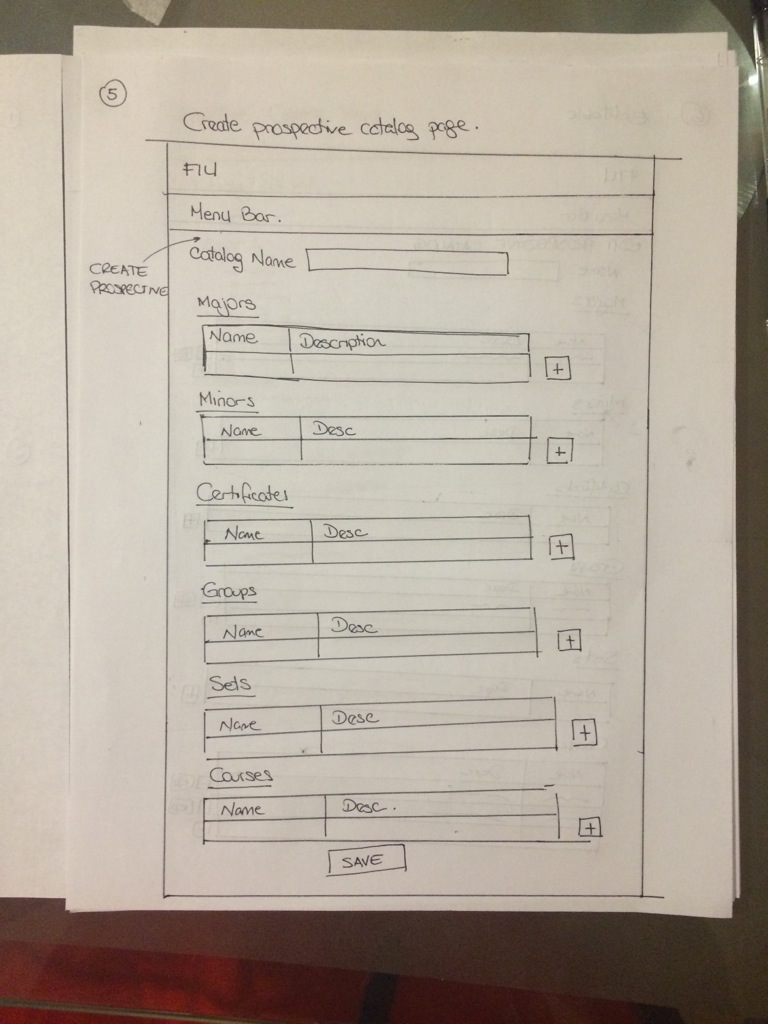 5
Create prospective catalog page.
FIU
Menu Bar.
CREATE
PROSPECTIVE
Catalog Name
Majors
Name Description
+
Minors
Name Desc
+
Certificates
Name Desc
+
Groups
Name Desc
+
Sets
Name Desc
+
Courses
Name Desc.
+
SAVE